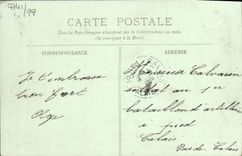 7741/99
CARTE POSTALE
Tous les Pays étrangers n'acceptent pas la Correspondance au recto.
(Se renseigner à la Poste).
CORRESPONDANCE
ADRESSE
Je t'embrasse
bien fort
Monsieur
soldat au 1er
bataillon d'artillerie
à pied
Calais
Pas de Calais